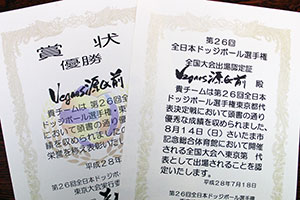 賞状
優勝
Vegars源G前
貴チームは第26回全
ドッジボール選手権
において頭書の通り
績を収められました
栄誉を称え表彰いた
平成28年
第26回全日本ド
東京大会実行委
第26回
全日本ドッジボール選手権
全国大会出場認定証
Vegars源G前 殿
貴チームは第26回全日本
ドッジボール選手権東京都代
表決定戦において頭書の
優秀な成績を収められました。
8月14日(日)さいたま市
記念総合体育館において開催
される全国大会へ東京第 代
表として出場されることを認
定いたします。
平成28年7月18日
第26回全日本ドッジボール選手権